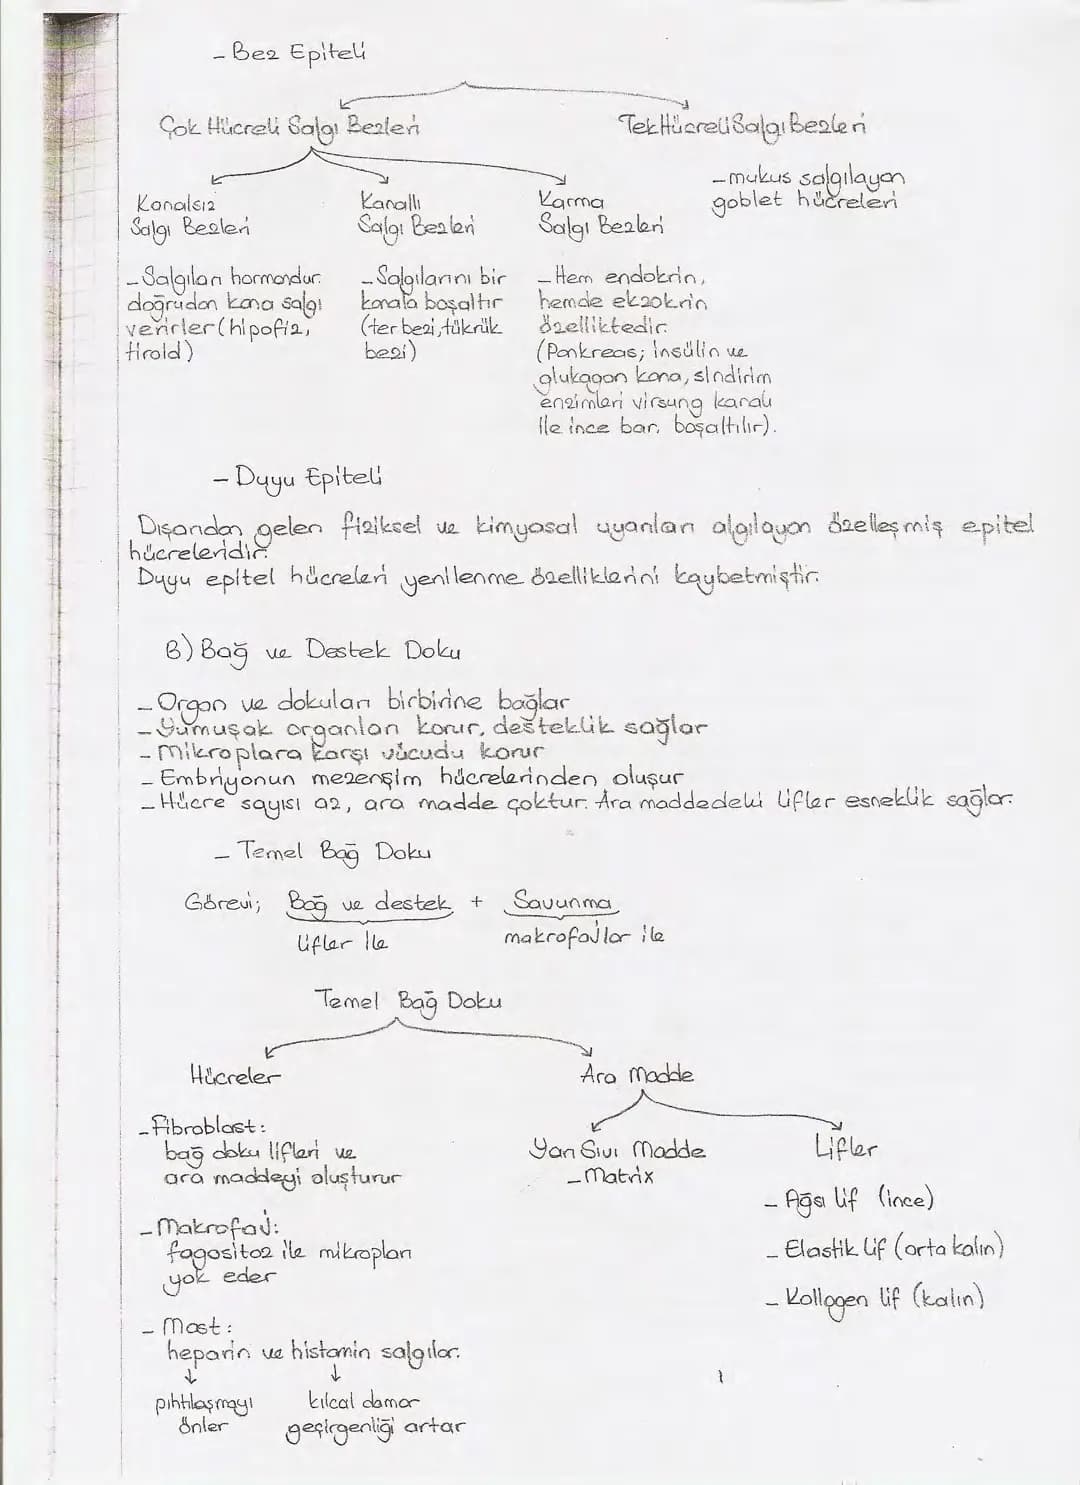 - Bez Epiteli
Çok Hücreli Salgı Bezleri
Tek Hücreli Salgı Bezleri
- mukus salgılayan
goblet hücreleri
Kanalsız
Salgı Bezleri
- Salgıları hormondur.
doğrudan kana salgı
verirler (hipofiz,
tiroid)
Kanallı
Salgı Bezleri
- Salgılarını bir
kanala boşaltır
(ter bezi, tükrük
bezi)
Karma
Salgı Bezleri
- Hem endokrin,
hemde ekzokrin
özelliktedir.
(Pankreas; insülin ve
glukagon kana, sindirim
enzimleri virsung kanalı
ile ince bar. boşaltılır).
- Duyu Epiteli
Dışarıdan gelen fiziksel ve kimyasal uyarıları algılayan özelleşmiş epitel
hücreleridir.
Duyu epitel hücreleri yenilenme özelliklerini kaybetmiştir.
B) Bağ ve Destek Doku
- Organ ve dokuları birbirine bağlar
- Yumuşak organları korur, desteklik sağlar
- Mikroplara karşı vücudu korur
- Embriyonun mezenşim hücrelerinden oluşur
- Hücre sayısı az, ara madde çoktur. Ara maddedeki lifler esneklik sağlar.
- Temel Bağ Doku
Görevi; Bağ ve destek + Savunma
lifler ile makrofajlar ile
Temel Bağ Doku
Hücreler
- Fibroblast:
bağ doku lifleri ve
ara maddeyi oluşturur
- Makrofaj:
fagositoz ile mikropları
yok eder
- Mast:
heparin ve histamin salgılar.
pıhtılaşmayı
önler
kılcal damar
geçirgenliği artar
Ara Madde
Yarı Sıvı Madde
- Matrix
Lifler
- Ağsı lif (ince)
- Elastik lif (orta kalın)
- Kollogen lif (kalın)